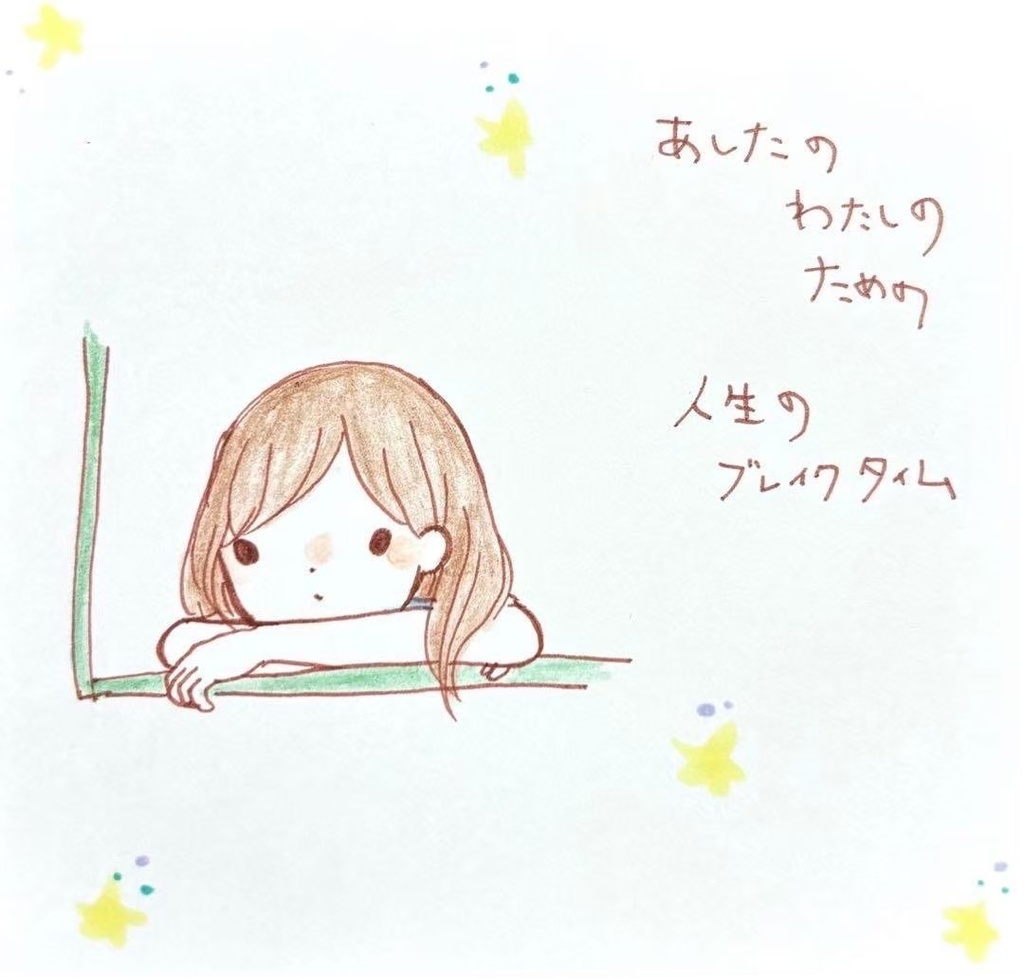 あしたの
わたしの
ための
人生の
ブレイクタイム